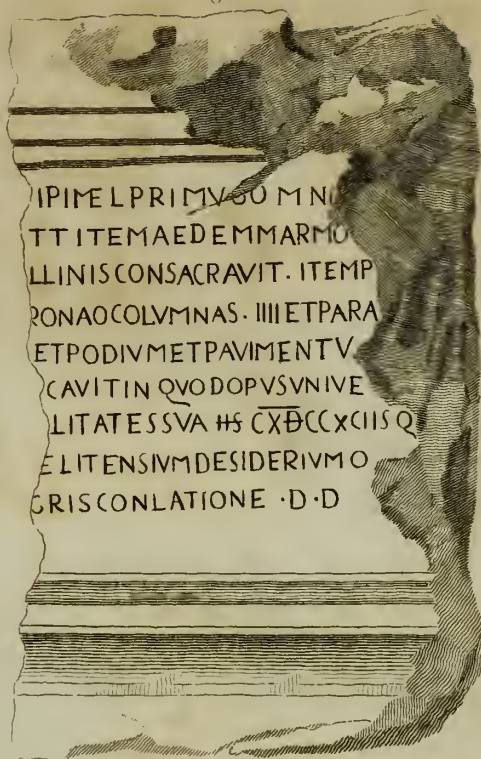 IPIMELPRIMVSOMN
TTITEMAEDEMMARMO
LLINISCONSACRAVIT. ITEMP
RONAOCOLVMNAS. IIIIETPARA
ETPODIVMETPAVIMENTV
CAVITINQVODOPVSVNIVE
LITATESSVA HS CXDCCXCIISQ
ELITENSIVMDESIDERIVMO
GRISCONLATIONE ·D·D